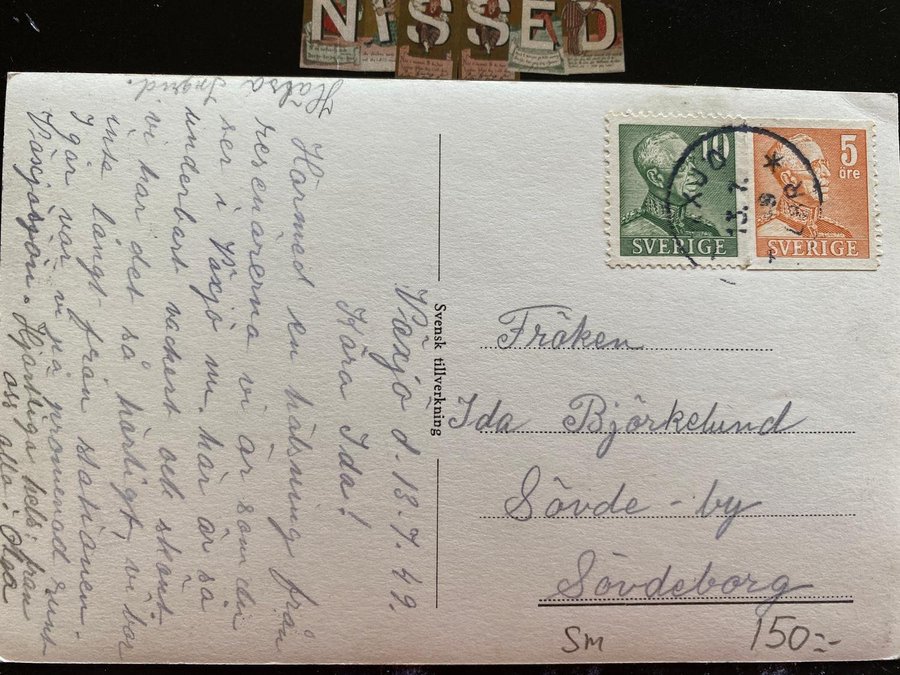 NISSED
Växjö d. 13.7.49.
Kära Ida!
Härmed en hälsning från
resenärerna vi är som du
ser i Växjö nu. här är så
underbart vackert och skönt
vi har det så härligt, vi bor
inte långt från stationen.
Igår var vi på promenad runt
Växjösjön. Hjärtliga hels: från
oss alla! Olga
Hälsa
Ingrid.
Svensk tillverkning
10
SVERIGE
5
öre
SVERIGE
VÄXJÖ
13. 7.
Fröken
Ida Björkelund
Sövde - by
Sövdeborg
Sm
150:-